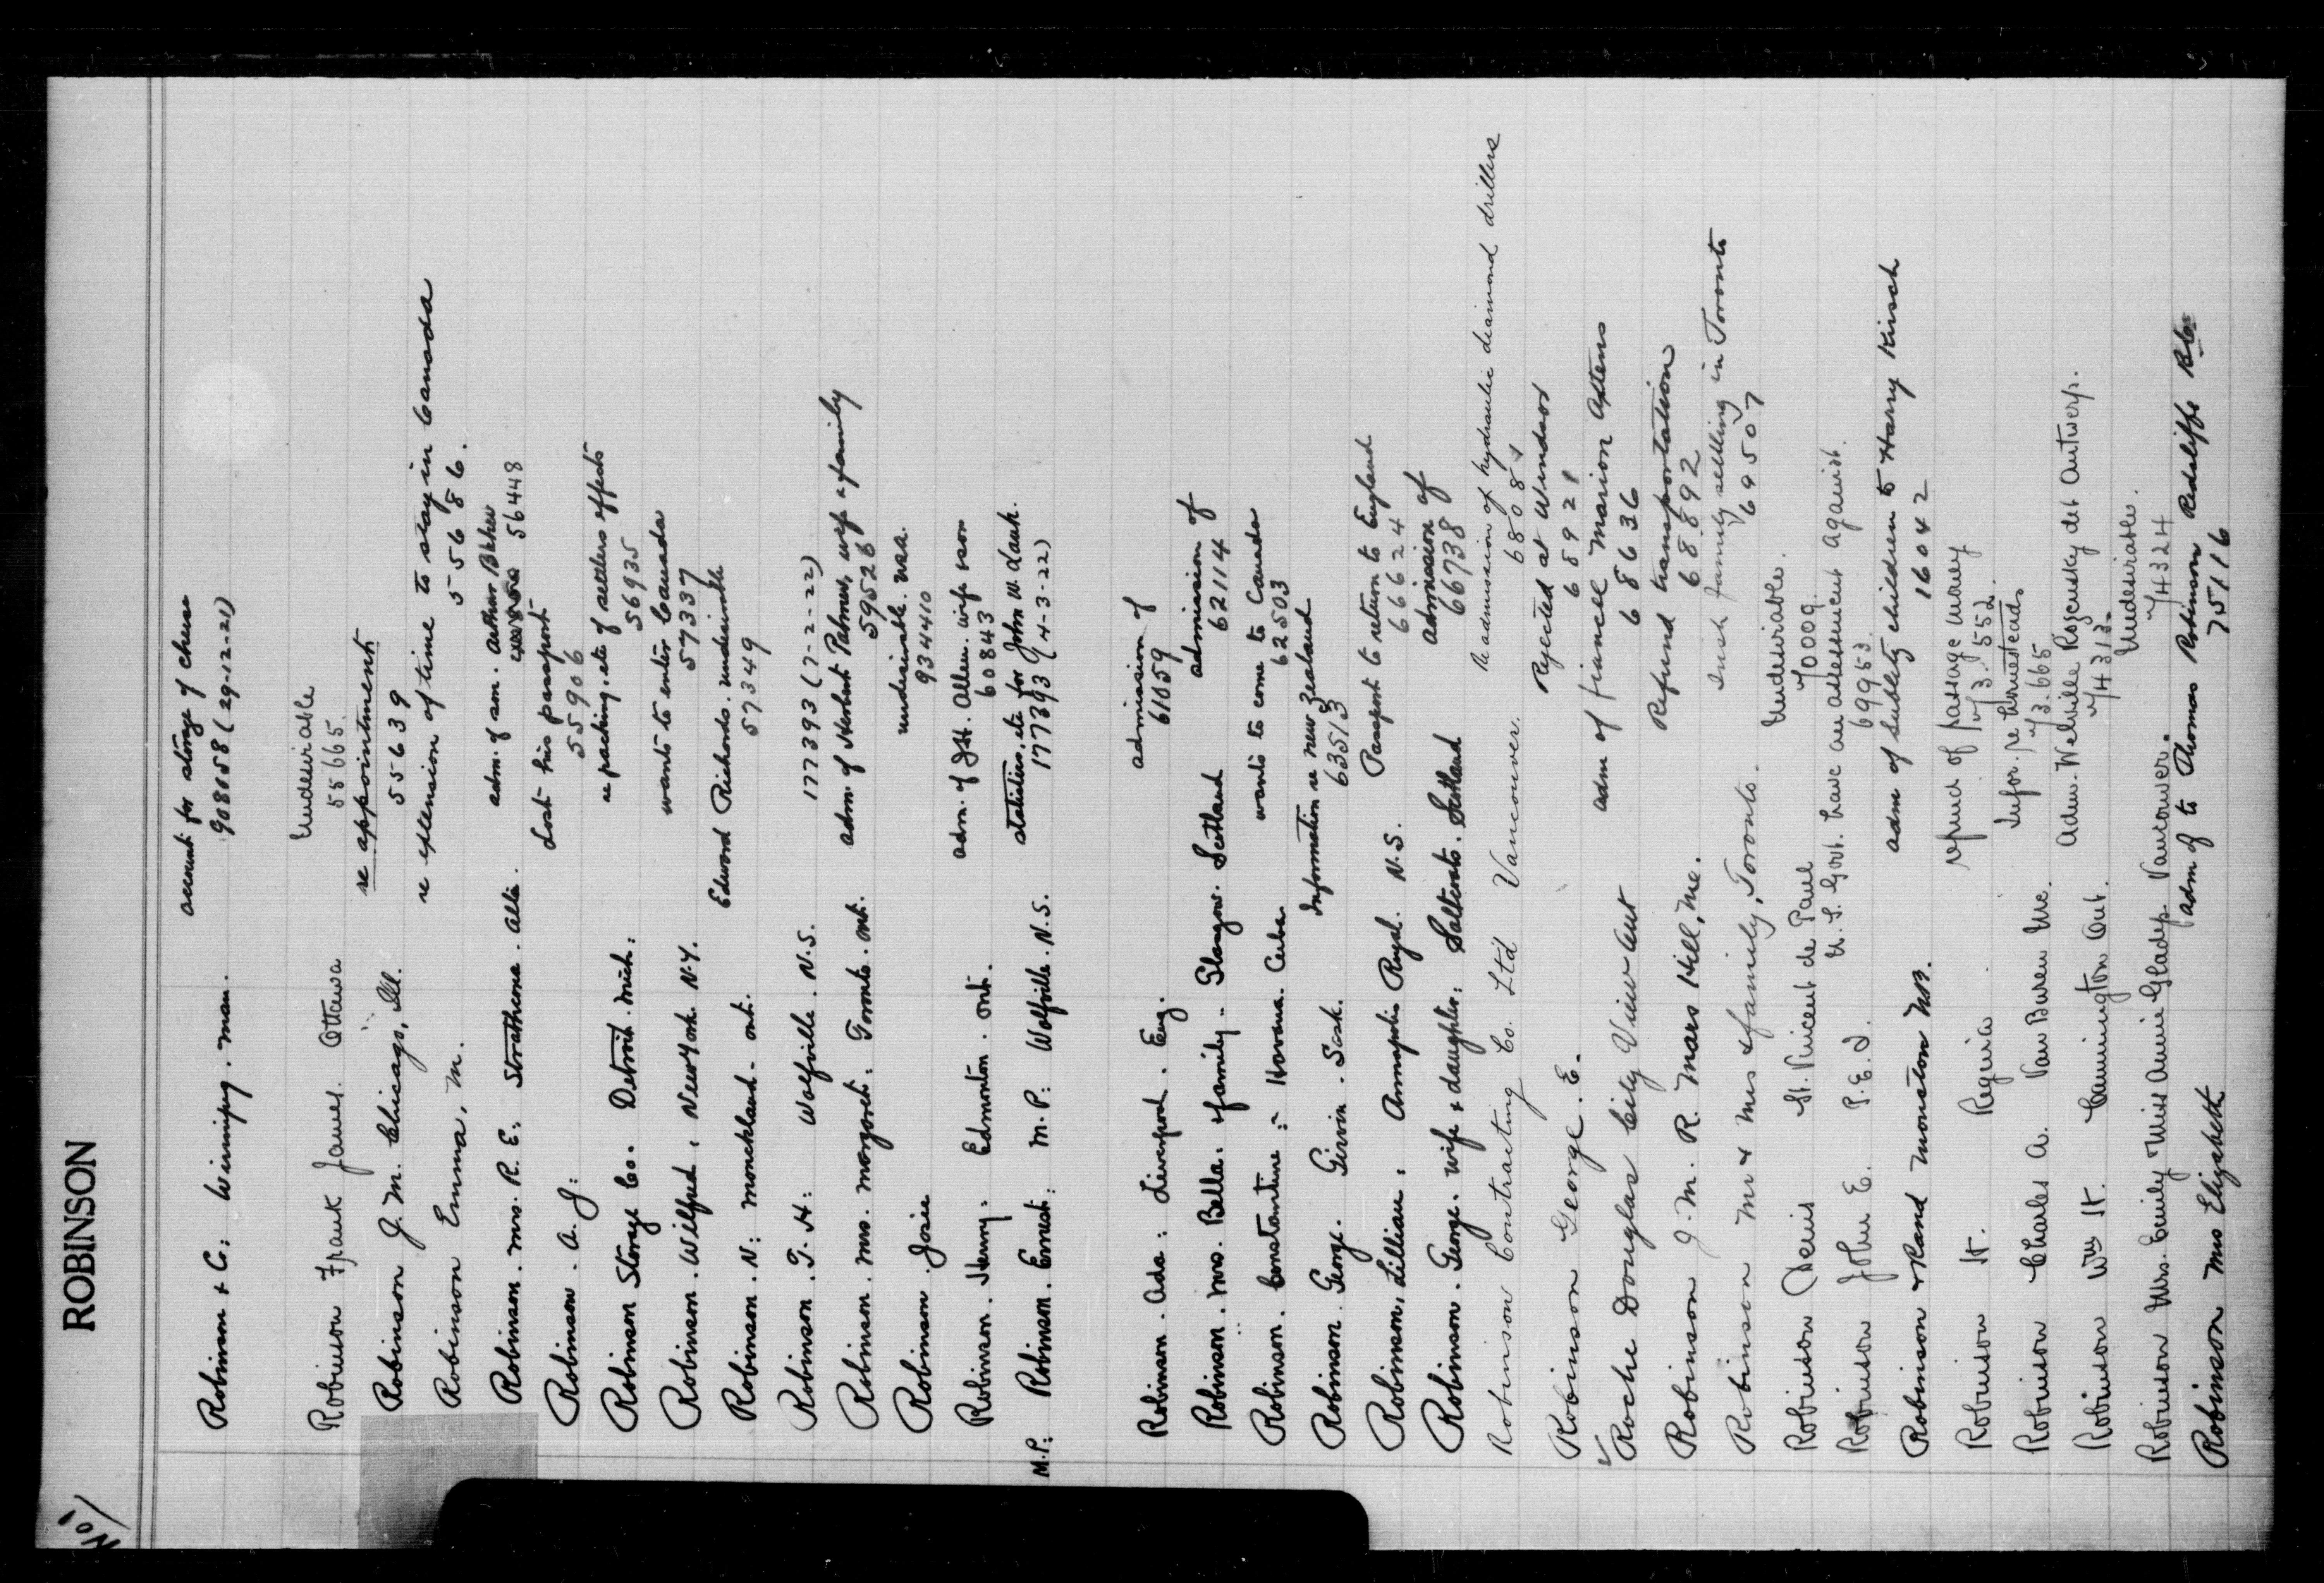 ROBINSON
Robinson & C: Winnipeg. Man. account for storage of
908158 (29-12-21)
Robinson Frank James Ottawa Undesirable
55665
Robinson J. M. Chicago, Ill. re appointment
55639
Robinson Emma, M. re extension of time to stay in Canada
55686.
Robinson. Mrs. R. E: Strathcona. Alta. adm. of son. Arthur
56448
Robinson. A. J: Lost his passport
55906
Robinson Storage Co. Detroit. Mich: re packing, etc of settlers effects
56935
Robinson. Wilfred, New York N.Y. wants to enter Canada
57337
Robinson. N: Monckland - Ont. Edward Richards. undesirable
57349
Robinson. T. H: Wolfville. N.S. 177393 (7-2-22)
Robinson. Mrs. Margaret: Toronto. Ont. adm. of Herbert Palmer, wife & family
59526
Robinson. Josie undesirable.
934410
Robinson. Henry. Edmonton. Ont. adm. of J.H. Allen. wife & son
60843
M.P: Robinson. Ernest: M.P: Wolfville. N.S. statistics, etc for John W.
177393 (4-3-22)
Robinson. Ada: Liverpool. Eng. admission of
61059
Robinson. Mrs. Bella. & family - Glasgow. Scotland admission of
62114
Robinson. Constantine :- Havana. Cuba. wants to come to Canada
62503
Robinson. George. Girvin. Sask. Information re New Zealand
63513
Robinson, Lillian, Annapolis Royal. N.S. Passport to return to England
66624
Robinson. George. wife & daughter: Saltcoats. Scotland admission of
66738
Robinson Contracting Co. Ltd Vancouver. Re admission of hydraulic diamond drillers
Robinson George. E. Rejected at Windsor
68921
Roche Douglas City View Ont adm of fiancee Marion
68636
Robinson J. M. R. Mars Hill, Me. Refund transportation
68892
Robinson Mr & Mrs & family, Toronto. Irish family settling in Toronto
69507
Robinson Denis St. Vincent de Paul Undesirable.
70009.
Robinson John E. P.E.I. U.S. Govt. have an assessment against.
69953.
Robinson & Rand Moncton N.B. adm of Sublety children to Harry Kirsch
16042
Robinson H. Regina refund of passage money
73.552.
Robinson Charles A. Van Buren Me. Infor. re homesteads
73.665
Robinson Wm H. Cannington Ont. Adm. Welville det Antwerp.
74313.
Robinson Mrs. Emily & Miss Annie Gladys Vancouver. Undesirable.
74324
Robinson Mrs Elizabeth adm of to Thomas Robinson Redcliffe
75116